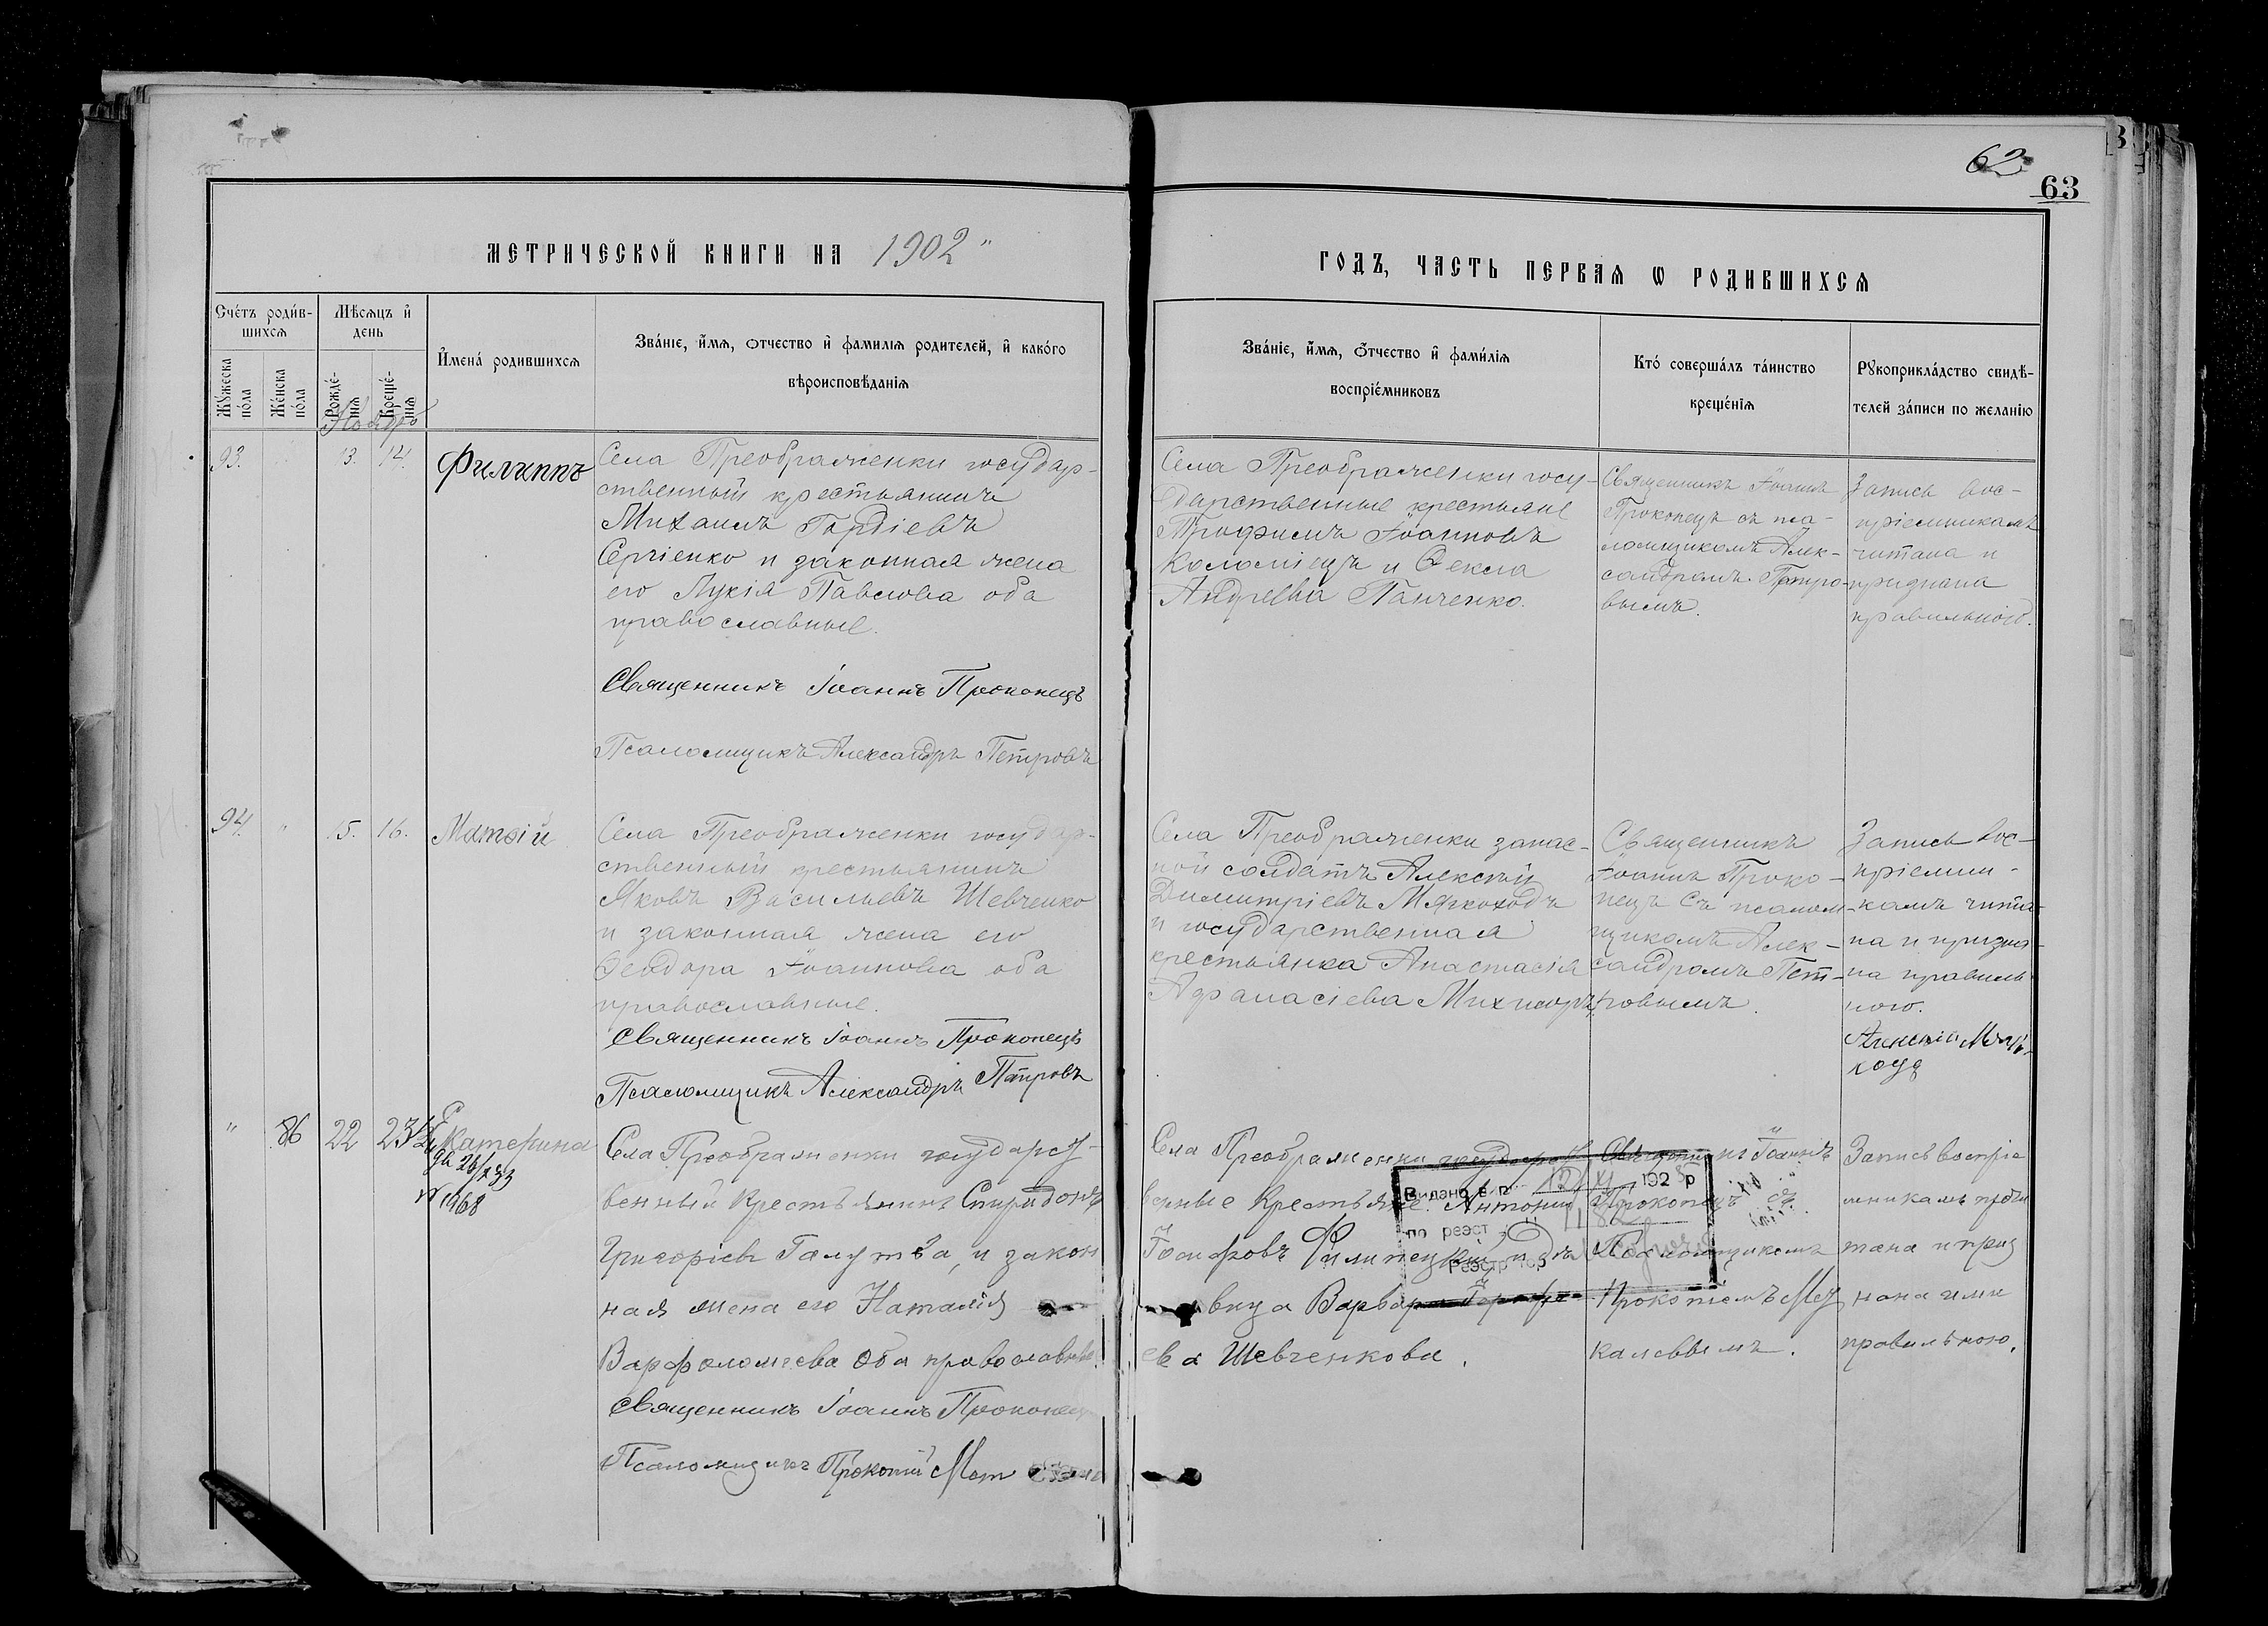 62
63
МЕТРИЧЕСКОЙ КНИГИ НА 1902
ГОДЪ, ЧАСТЬ ПЕРВАЯ Ѡ РОДИВШИХСЯ
Счетъ родив-
шихся
Мѣсяцъ и
день
Мужеска
пола
Женска
пола
Рожде-
нія
Креще-
нія
Имена родившихся
Званіе, имя, отчество и фамилія родителей, и какого
вѣроисповѣданія
Званіе, имя, отчество и фамилія
воспріемниковъ
Кто совершалъ таинство
крещенія
Рукоприкладство свидѣ-
телей записи по желанію
Ноябрь
93.
13.
14.
Филиппъ
Села Преображенки государ-
ственный крестьянинъ
Михаилъ Гордіевъ
Сергіенко и законная жена
его Лукія Павлова оба
православные.
Священникъ Іоаннъ Прокопецъ
Псаломщикъ Александръ Петровъ
Села Преображенки госу-
дарственные крестьяне
Трофимъ Іоанновъ
Коломіецъ и Ѳекла
Андреева Панченко.
Священникъ Іоаннъ
Прокопецъ съ пса-
ломщикомъ Алек-
сандромъ Петро-
вымъ.
Запись вос-
пріемникамъ
читана и
признана
правильной.
94.
"
15.
16.
Матѳій
Села Преображенки государ-
ственный крестьянинъ
Яковъ Васильевъ Шевченко
и законная жена его
Ѳеодора Іоаннова оба
православные.
Священникъ Іоаннъ Прокопецъ
Псаломщикъ Александръ Петровъ
Села Преображенки запас-
ной солдатъ Алексѣй
Димитріевъ Мягкоходъ
и государственная
крестьянка Анастасія
Афанасіева
Священникъ
Іоаннъ Проко-
пецъ съ псалом-
щикомъ Алек-
сандромъ Пет-
ровымъ.
Запись вос-
пріемни-
камъ чита-
на и призна-
на правиль
ного.
Алексѣй
"
86
22
23
Екатерина
№ 1468
Села Преображенки государст-
венный Крестьянинъ Спиридонъ
Григоріевъ Галутва, и закон
ная жена его Наталія
Варфоломеева Оба православные.
Священникъ Іоаннъ Прокопецъ
Псаломщикъ Прокопій
Села Преображенки государст
венные Крестьяне: Антоній
Іосифовъ Филипецкій и
вица Варвара
ева Шевченкова.
Священникъ Іоаннъ
Прокопецъ съ
Псаломщикомъ
Прокопіемъ
калевымъ.
Запись воспріе
мникамъ прочи
тана и приз
нана ими
правильною.
Видано в.п. 192 р
по реэст
Реэстратор